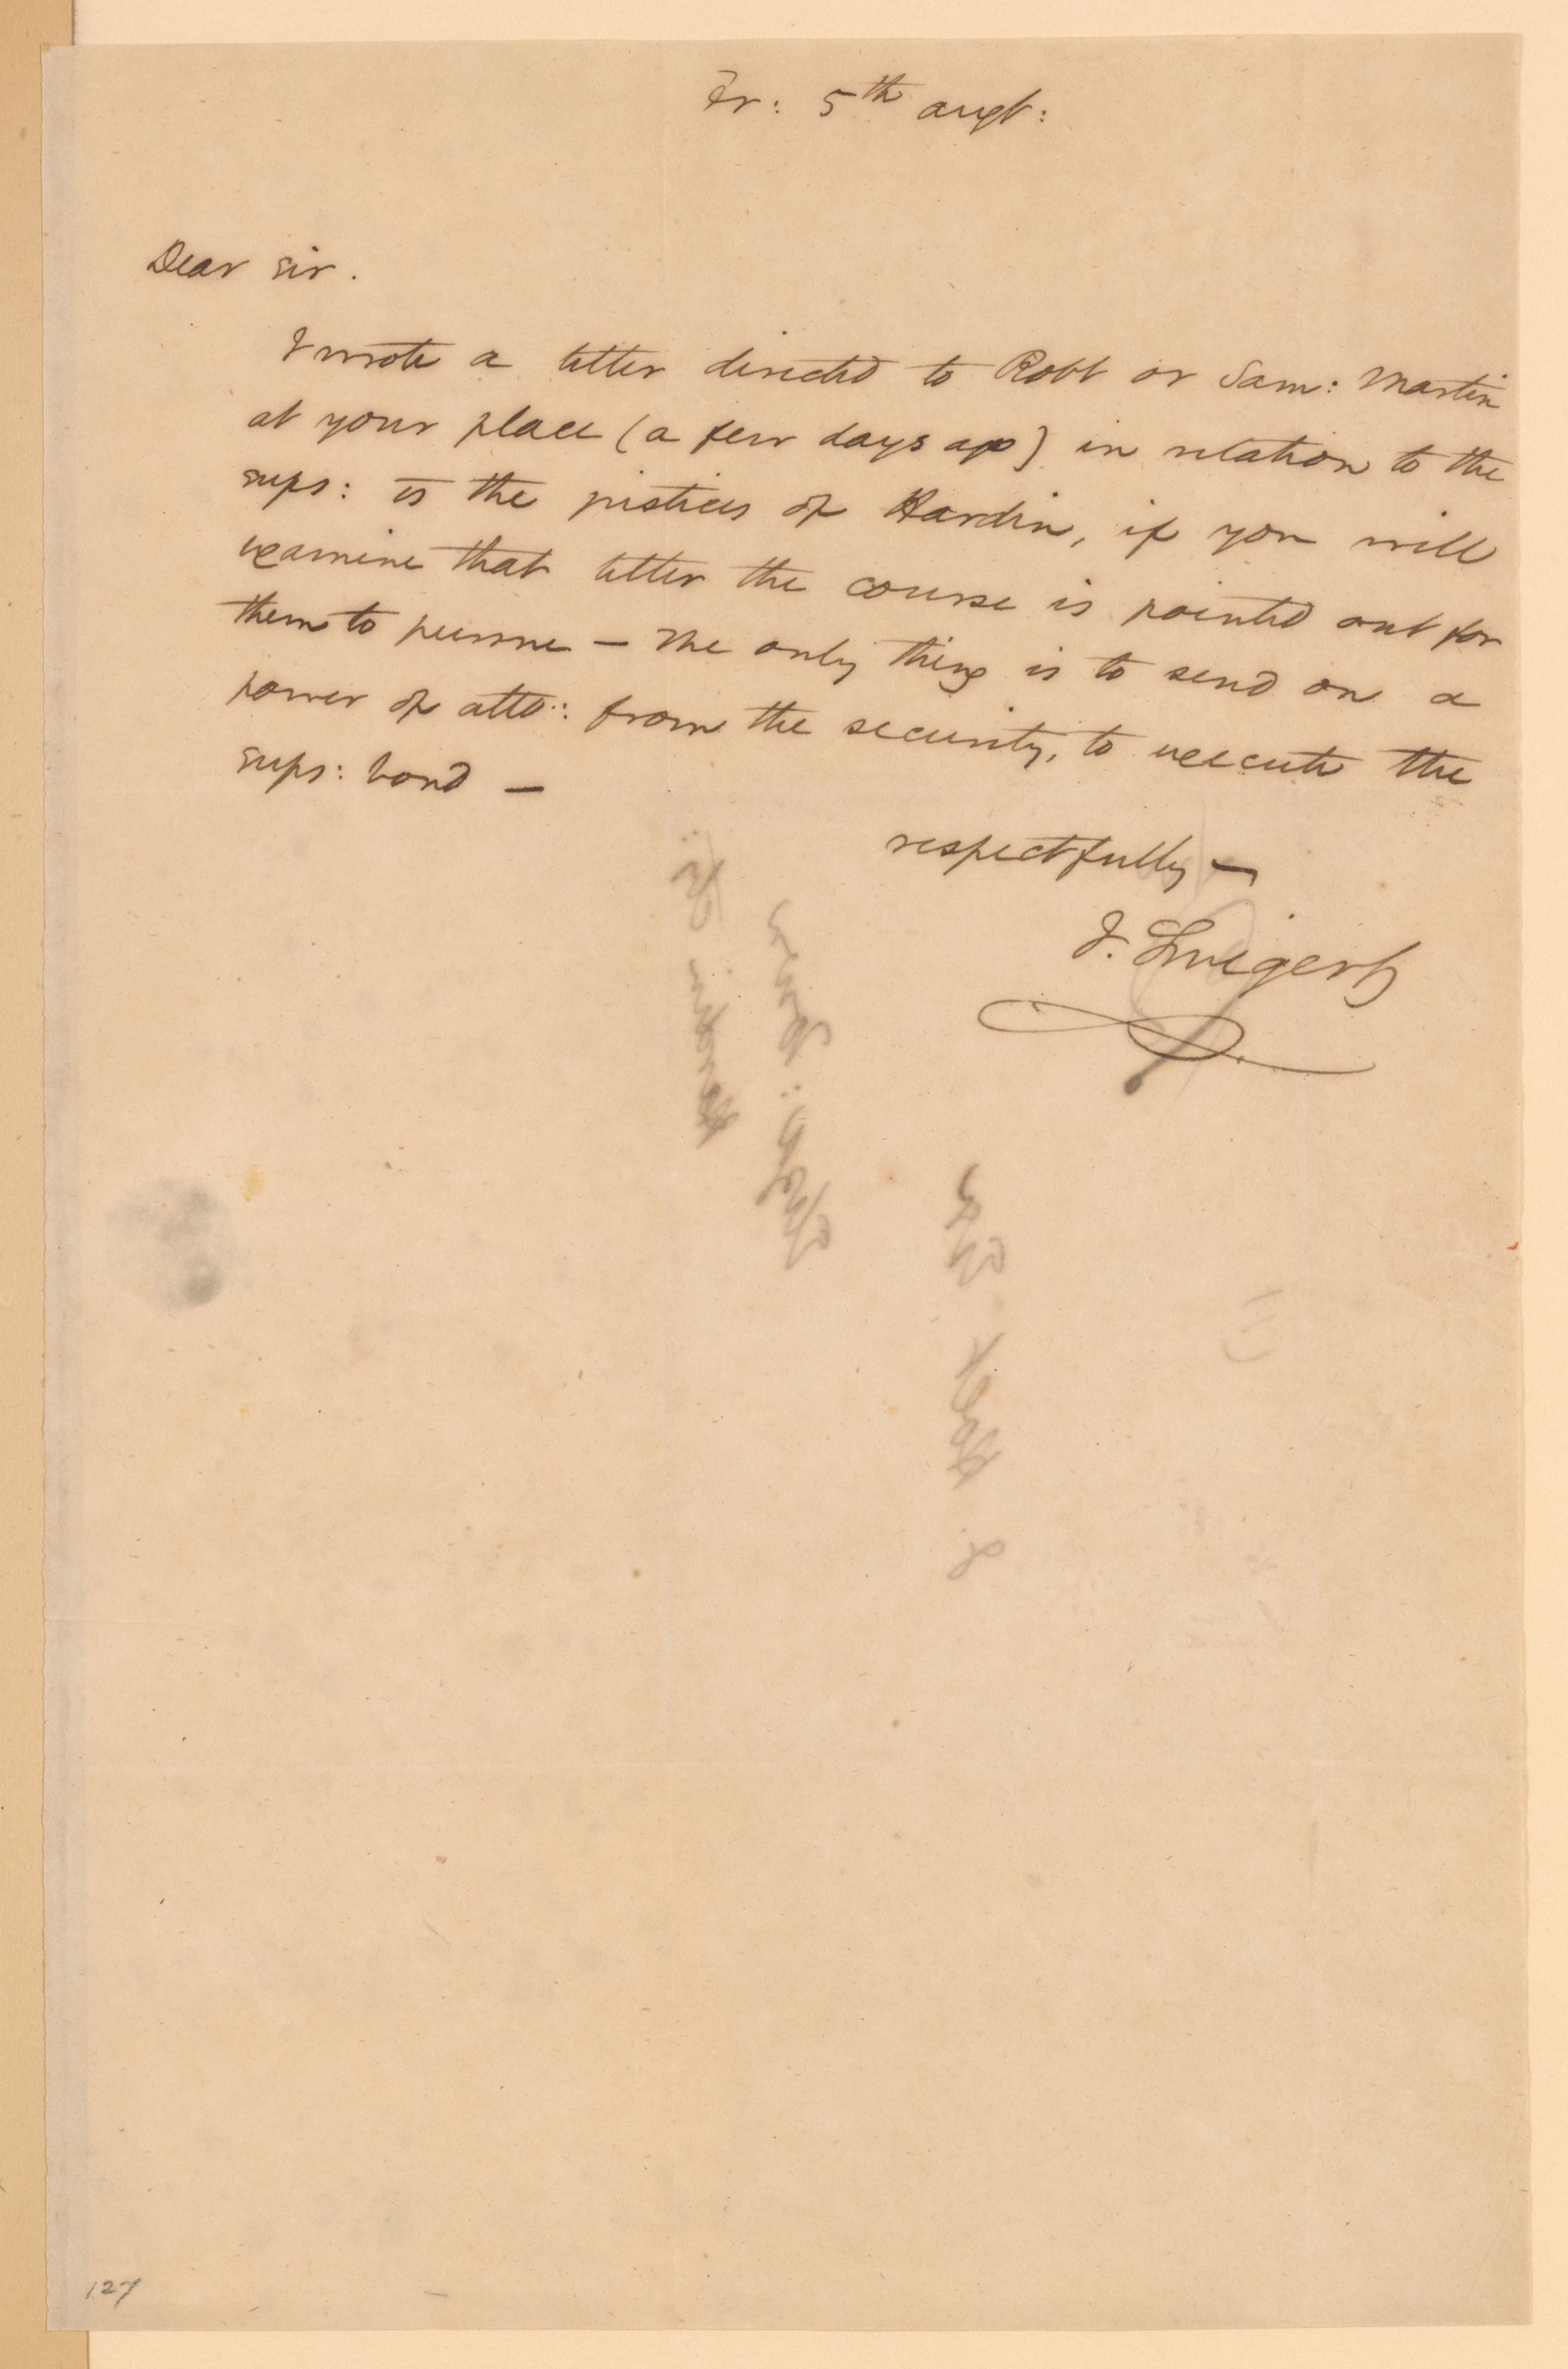 Fr: 5th augt:
Dear sir.
I wrote a letter directed to Robt or Sam: Martin
at your place (a few days ago) in relation to the
sups: vs the justices of Hardin, if you will
examine that letter the course is pointed out for
them to pursue — The only thing is to send on a
power of atto:: from the security, to execute the
sups: bond —
respectfully —
J. Swigert
127